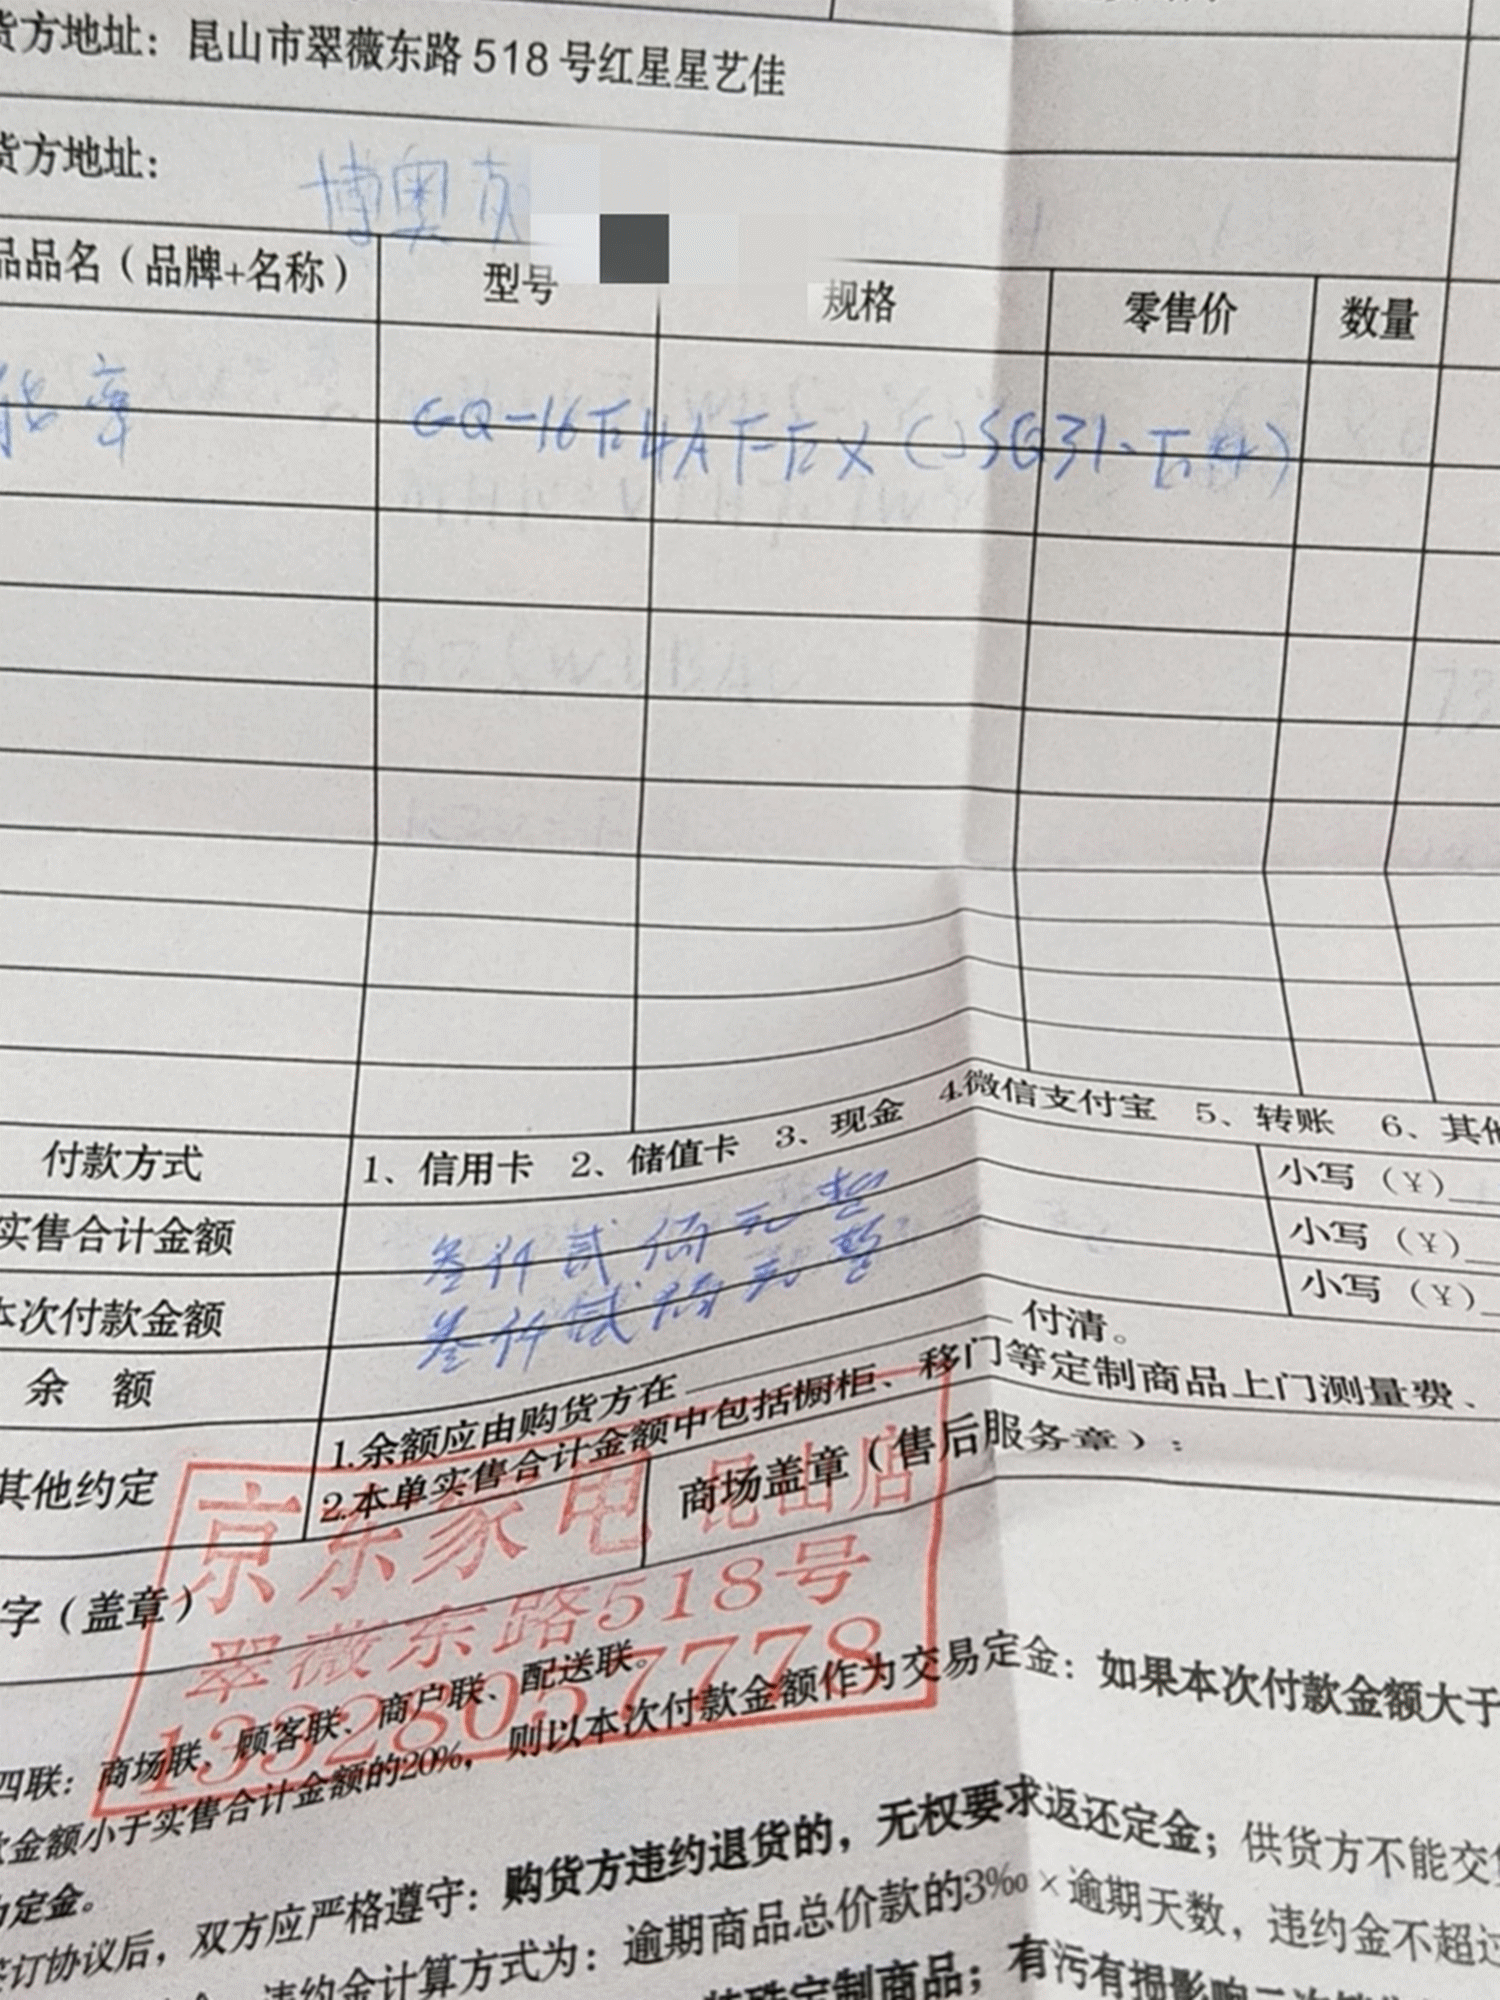 货方地址：昆山市翠薇东路518号红星星艺佳
货方地址：
博奥
品品名（品牌+名称）
型号
规格
零售价
数量
能率
GQ-16E4AFEX（JSG31-E
付款方式
1、信用卡 2、储值卡 3、现金 4.微信支付宝 5、转账 6、其他
实售合计金额
叁仟贰佰元整
小写（¥）
本次付款金额
叁仟贰佰元整
小写（¥）
余 额
小写（¥）
其他约定
1.余额应由购货方在 付清。
2.本单实售合计金额中包括橱柜、移门等定制商品上门测量费、
字（盖章）
商场盖章（售后服务章）：
京东家电 昆山店
翠薇东路518号
13328057778
四联：商场联、顾客联、商户联、配送联。
款金额小于实售合计金额的20%，则以本次付款金额作为交易定金：如果本次付款金额大于
为定金。
签订协议后，双方应严格遵守：购货方违约退货的，无权要求返还定金；供货方不能交货
违约金计算方式为：逾期商品总价款的3‰×逾期天数，违约金不超过
特殊定制商品；有污有损影响二次销售